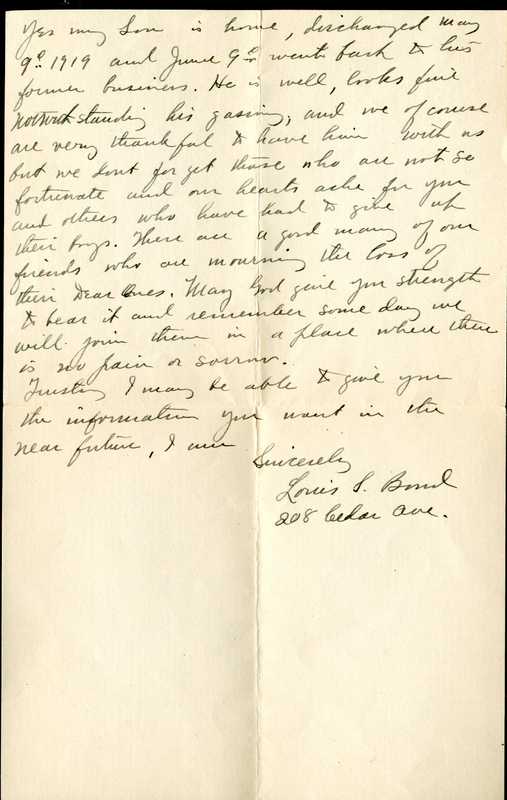 Yes my Son is home, discharged May
9th 1919 and June 9th went back to his
former business. He is well, looks fine
notwithstanding his gassing, and we of course
are very thankful to have him with us
but we dont forget those who are not so
fortunate and our hearts ache for you
and others who have had to give up
their boys. There are a good many of our
friends who are mourning the loss of
their Dear Ones. May God give you strength
to bear it and remember some day we
will join them in a place where there
is no pain or sorrow.
Trusting I may be able to give you
the information you want in the
near future, I am
Sincerely
Louis S. Bond
208 Cedar Ave.